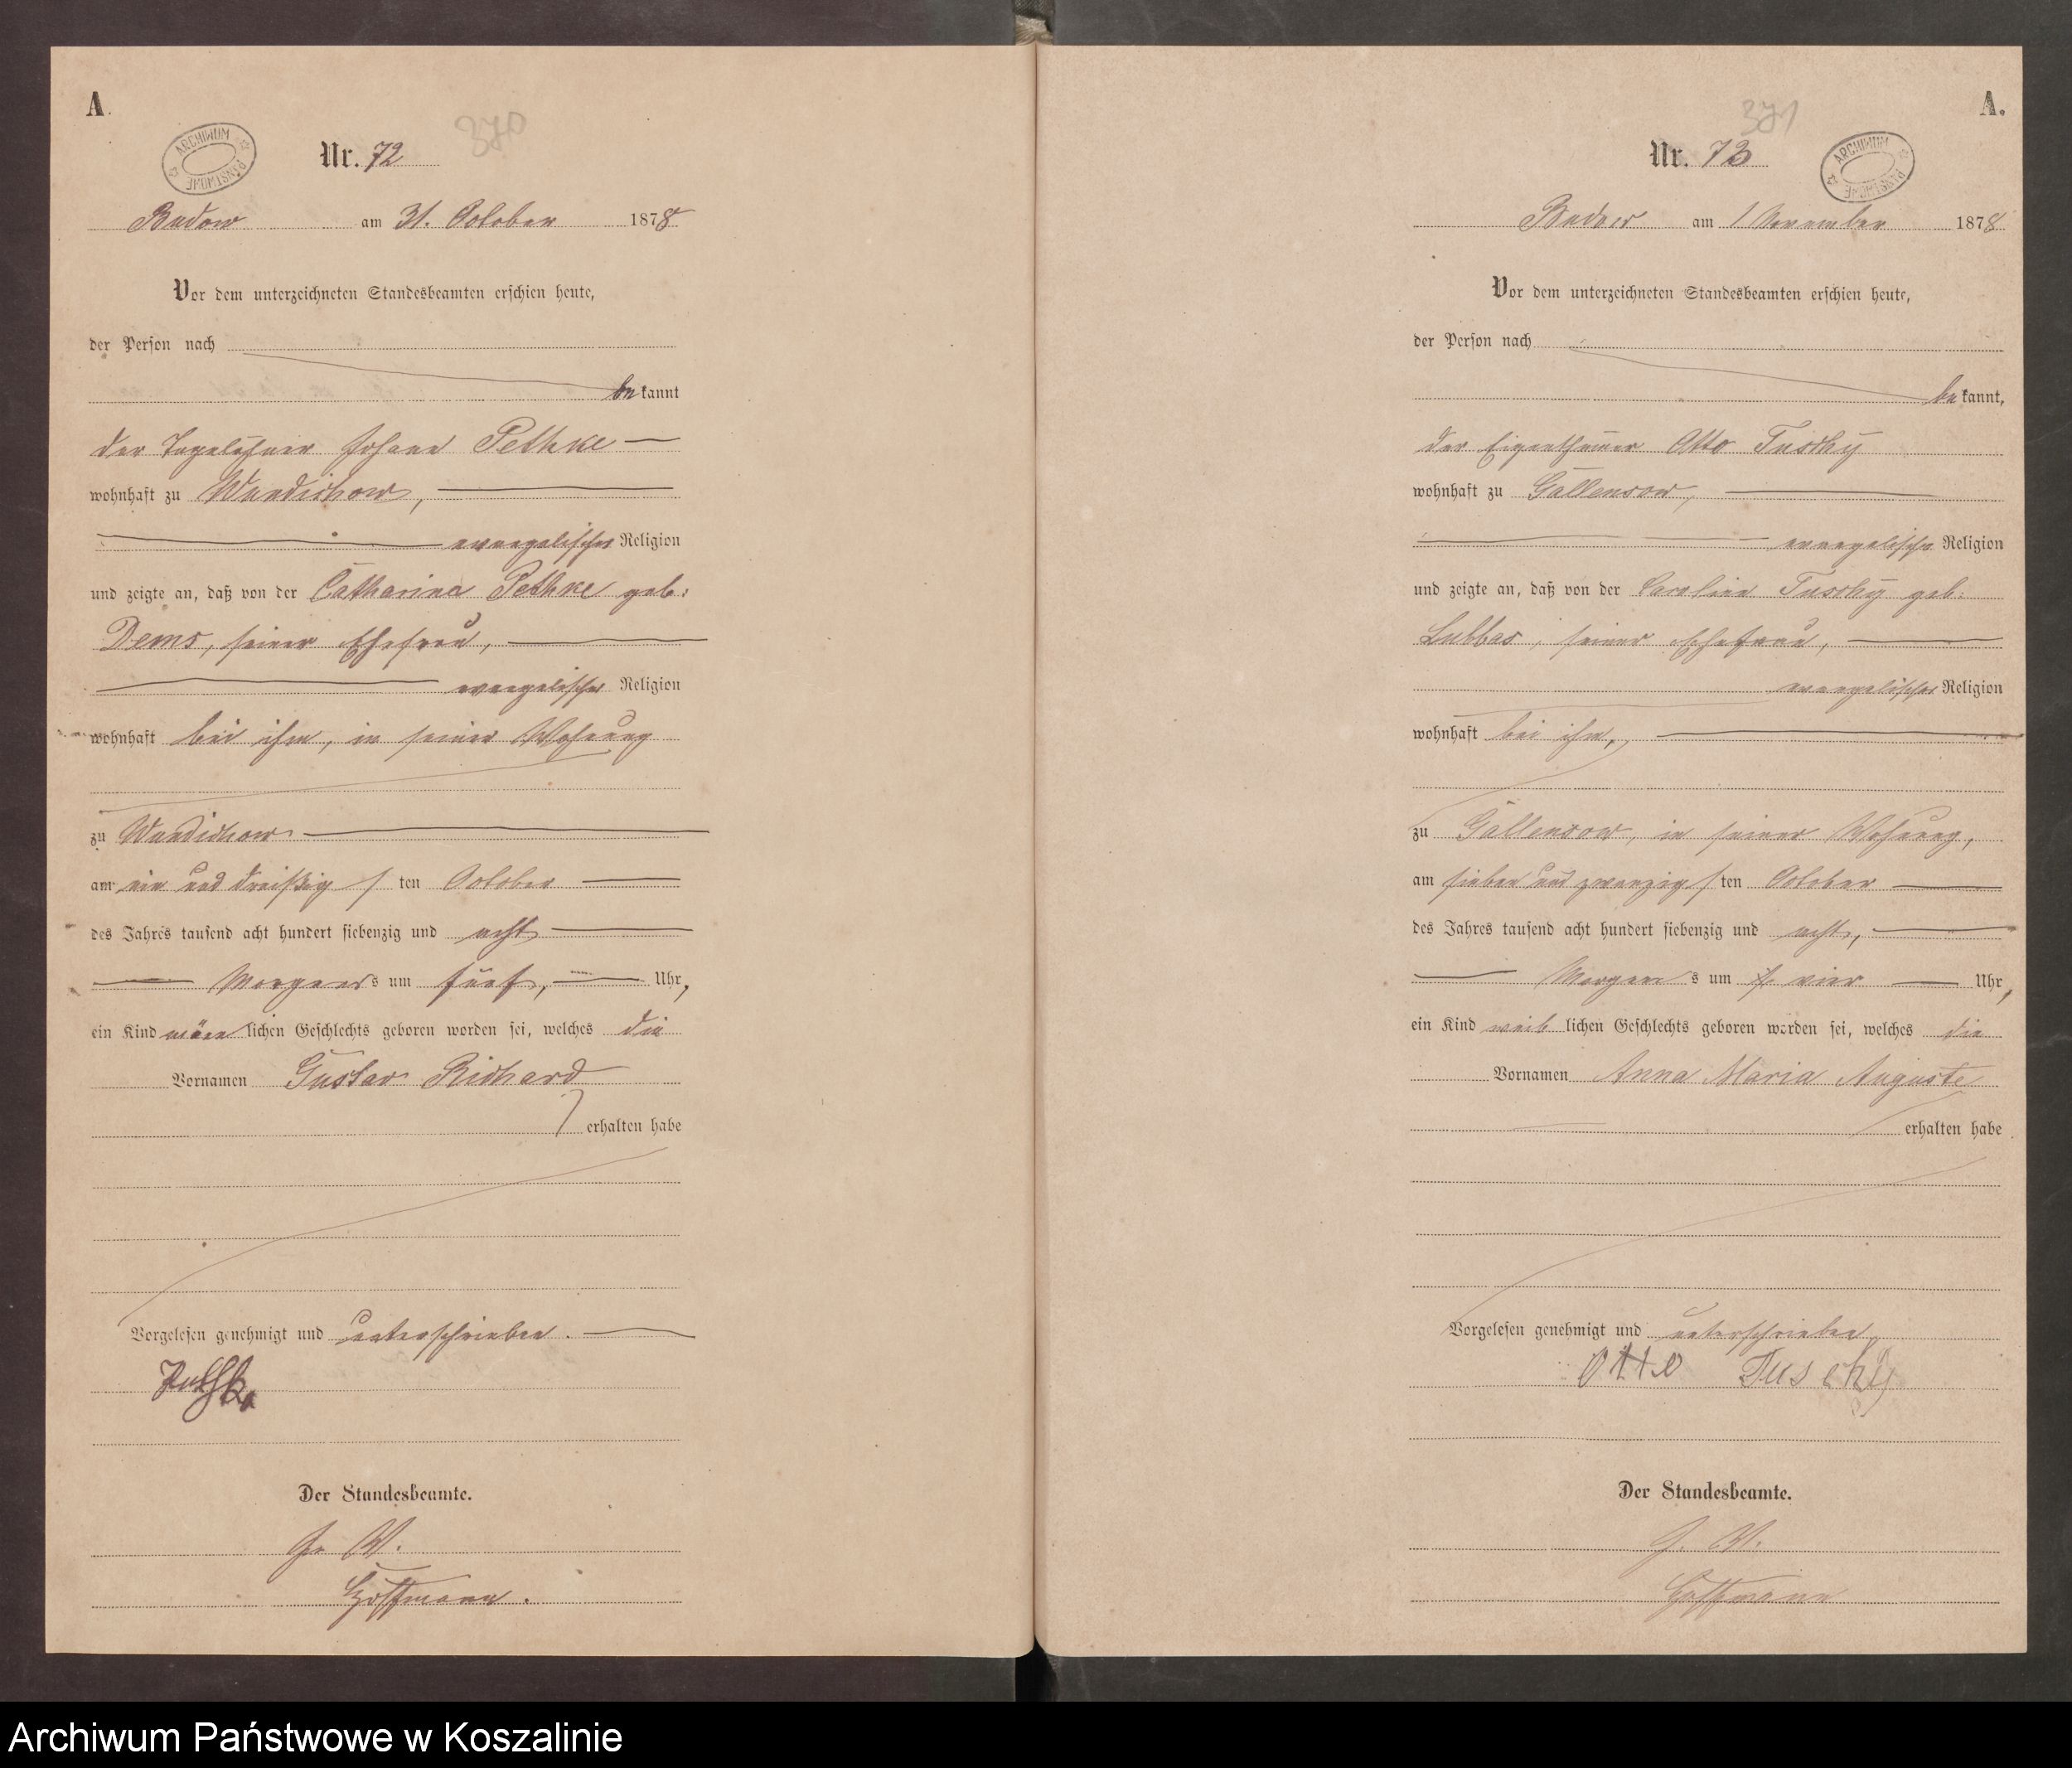 A.
370
ARCHIWUM PAŃSTWOWE
Nr. 72
Budow am 31. October 1878
Vor dem unterzeichneten Standesbeamten erschien heute,
der Person nach
bekannt
der Tagelöhner Johann Pethke
wohnhaft zu Wundichow,
evangelischer Religion
und zeigte an, daß von der Catharina Pethke geb:
Dems, seiner Ehefrau,
evangelischer Religion
wohnhaft bei ihm, in seiner Wohnung
zu Wundichow
am ein und dreißig ten October
des Jahres tausend acht hundert siebenzig und acht
Morgens um fünf, Uhr,
ein Kind männlichen Geschlechts geboren worden sei, welches die
Vornamen Gustav Richard
erhalten habe
Vorgelesen genehmigt und unterschrieben.
Pethke
Der Standesbeamte.
In V.
Hoffmann.
A.
371
Nr. 73
ARCHIWUM PAŃSTWOWE
Budow am 1 November 1878
Vor dem unterzeichneten Standesbeamten erschien heute,
der Person nach
bekannt,
der Eigenthümer Otto Tuschy
wohnhaft zu Gallensow,
evangelischer Religion
und zeigte an, daß von der Caroline Tuschy geb:
Lubbas, seiner Ehefrau,
evangelischer Religion
wohnhaft bei ihm,
zu Gallensow, in seiner Wohnung,
am sieben und zwanzig ten October
des Jahres tausend acht hundert siebenzig und acht,
Morgens um vier Uhr,
ein Kind weiblichen Geschlechts geboren worden sei, welches die
Vornamen Anna Maria Auguste
erhalten habe
Vorgelesen genehmigt und unterschrieben
Otto Tuschy
Der Standesbeamte.
J. V.
Hoffmann
Archiwum Państwowe w Koszalinie